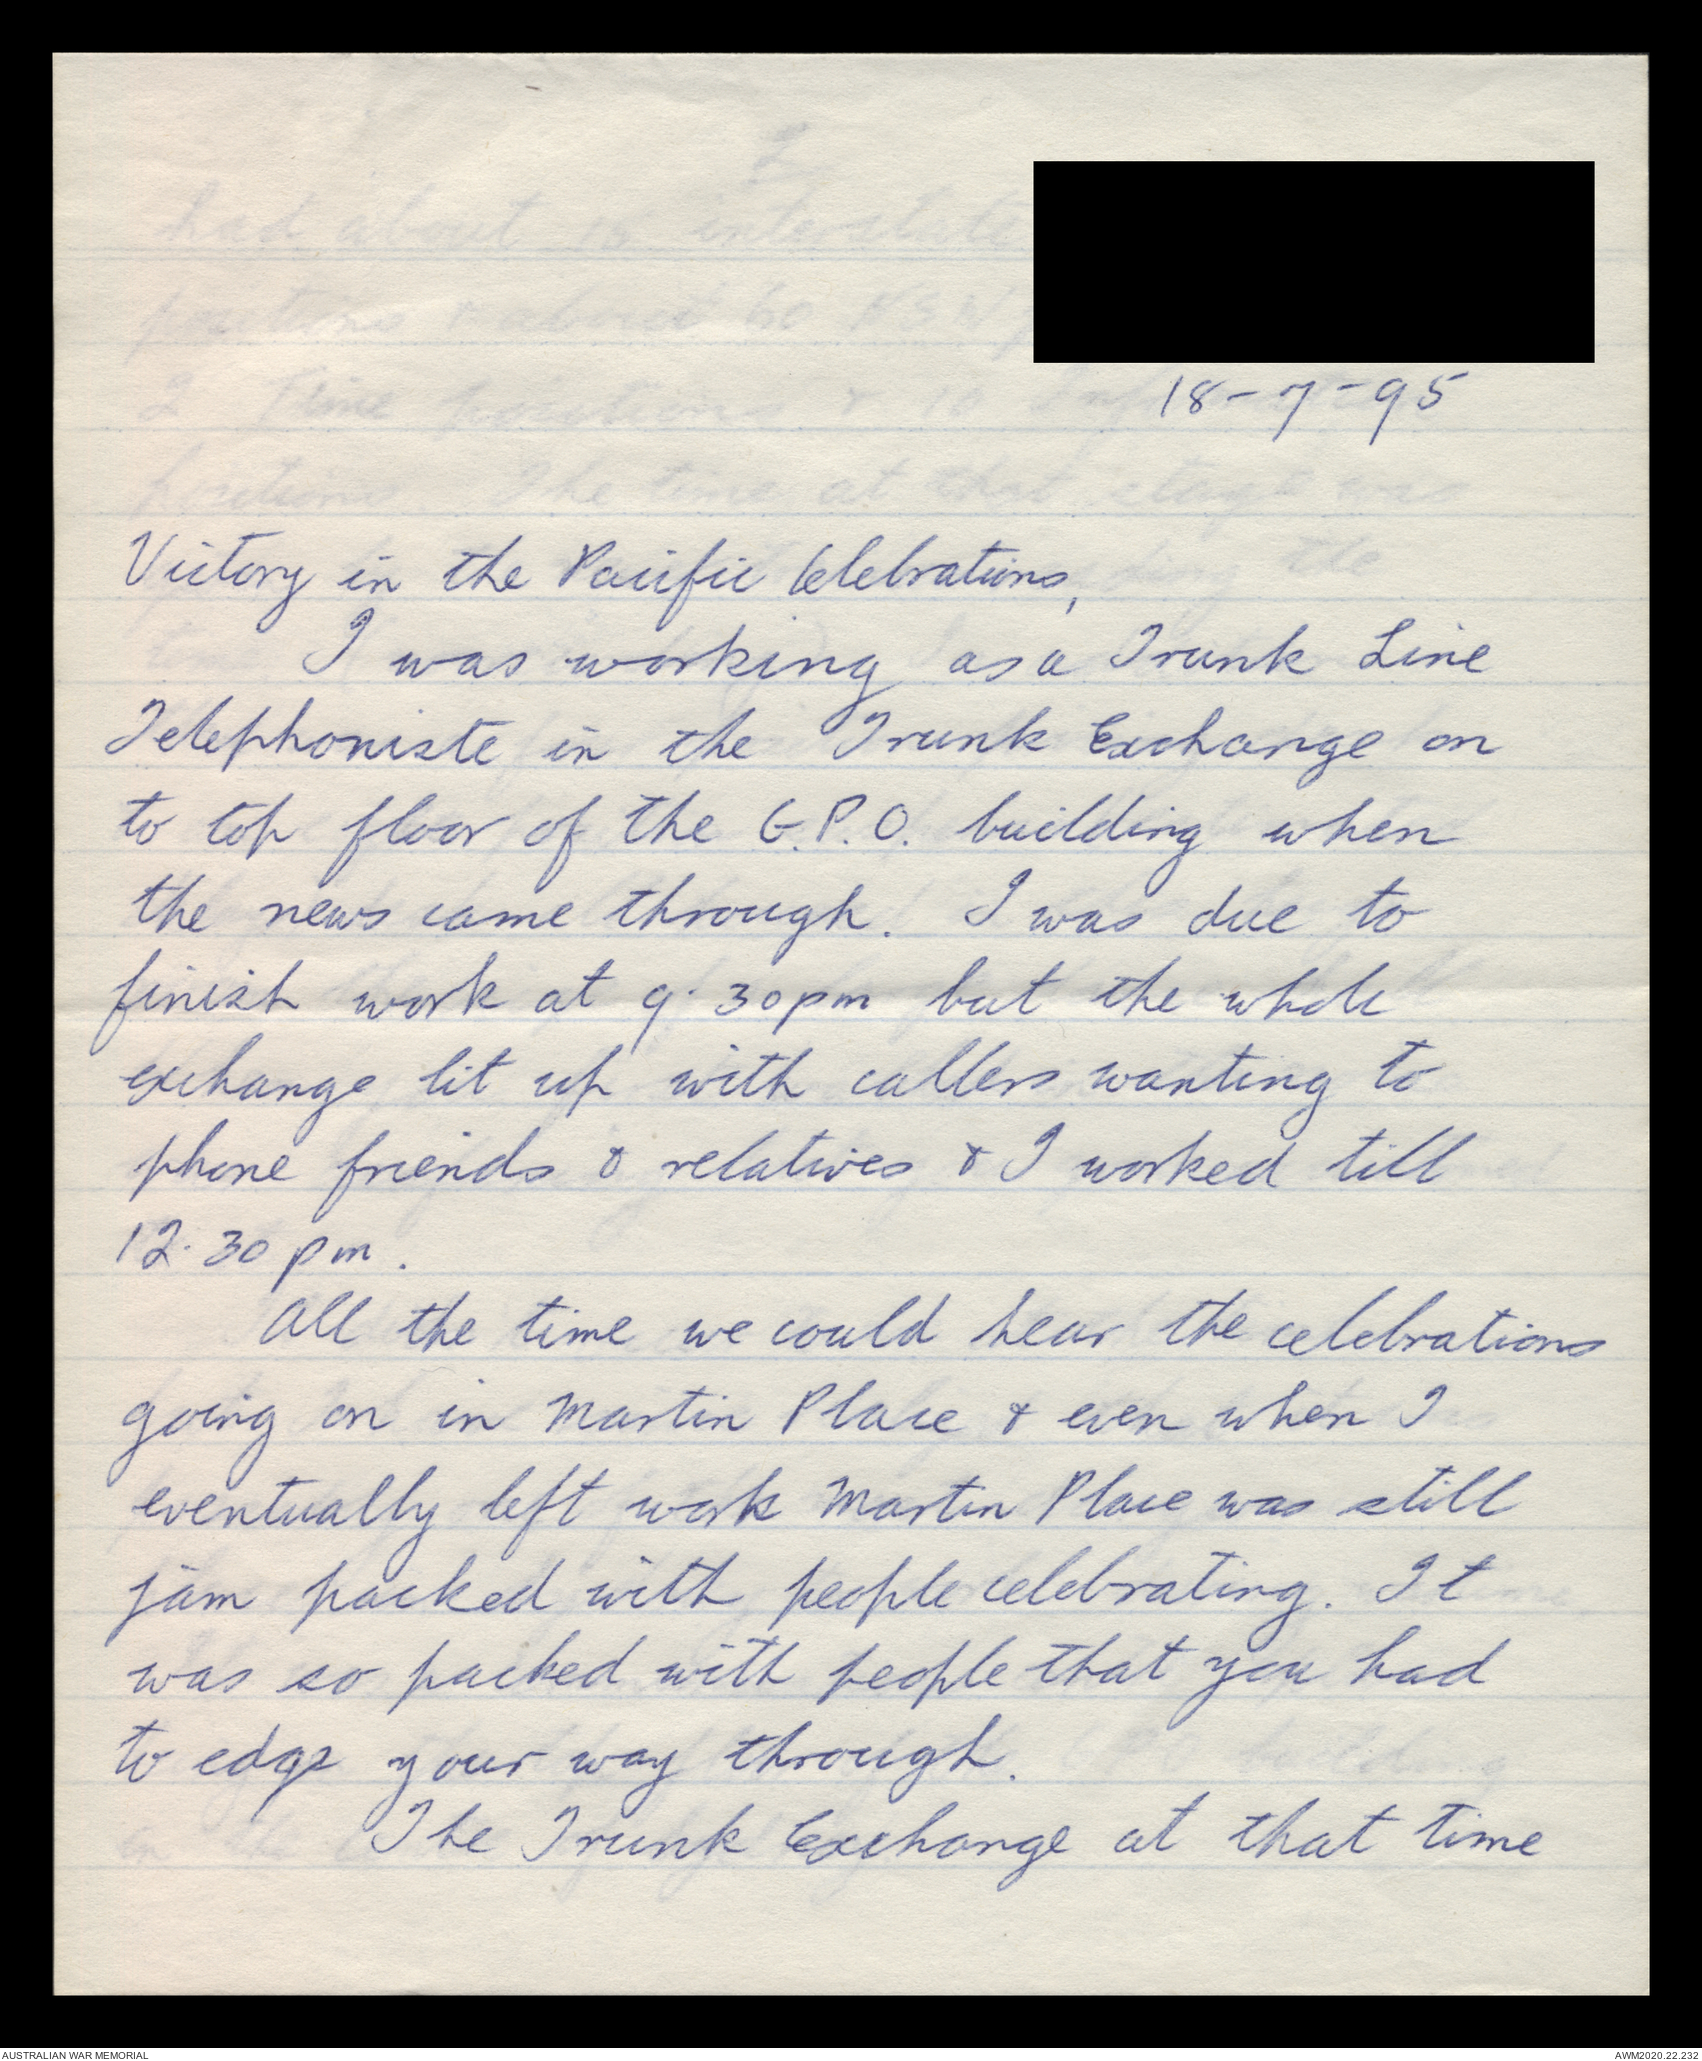 18-7-95
Victory in the Pacific Celebrations,
I was working as a Trunk Line
Telephoniste in the Trunk Exchange on
to top floor of the G.P.O. building when
the news came through. I was due to
finish work at 9.30pm but the whole
exchange lit up with callers wanting to
phone friends & relatives & I worked till
12.30 pm.
All the time we could hear the celebrations
going on in Martin Place & even when I
eventually left work Martin Place was still
jam packed with people celebrating. It
was so packed with people that you had
to edge your way through.
The Trunk Exchange at that time
AUSTRALIAN WAR MEMORIAL
AWM2020.22.232